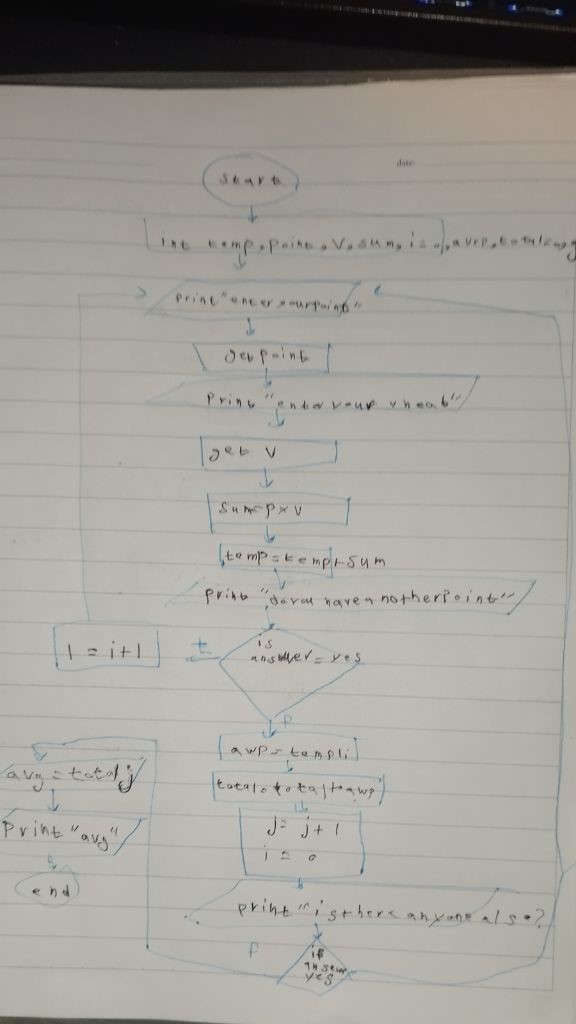 date:
start
int temp, point, v, sum, i = 0, avrp, total = 0, j
print "enter your point"
get point
print "enter your vheat"
get v
sum = p × v
temp = temp + sum
print "do you have another point"
is
answer = yes
t
I = i+1
f
awp = temp/i
total = total + awp
j = j + 1
i = 0
print "is there anyone else?
if
answer
yes
f
avg = total/j
print "avg"
end